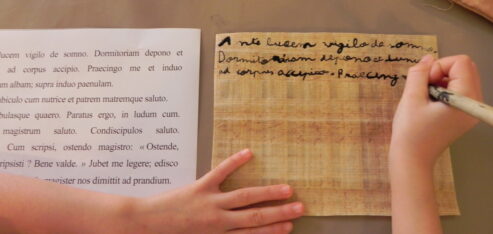 lucem vigilo de somno. Dormitoriam depono et
ad corpus accipio. Praecingo me et induo
m albam; supra induo paenulam.
biculo cum nutrice et patrem matremque saluto.
bulasque quaero. Paratus ergo, in ludum cum.
magistrum saluto. Condiscipulos saluto.
Cum scripsi, ostendo magistro: « Ostende,
ripsisti ? Bene valde. » Jubet me legere; edisco
magister nos dimittit ad prandium.
Ante lucem vigilo de somno.
Dormitoriam depono et
ad corpus accipio. Praecing